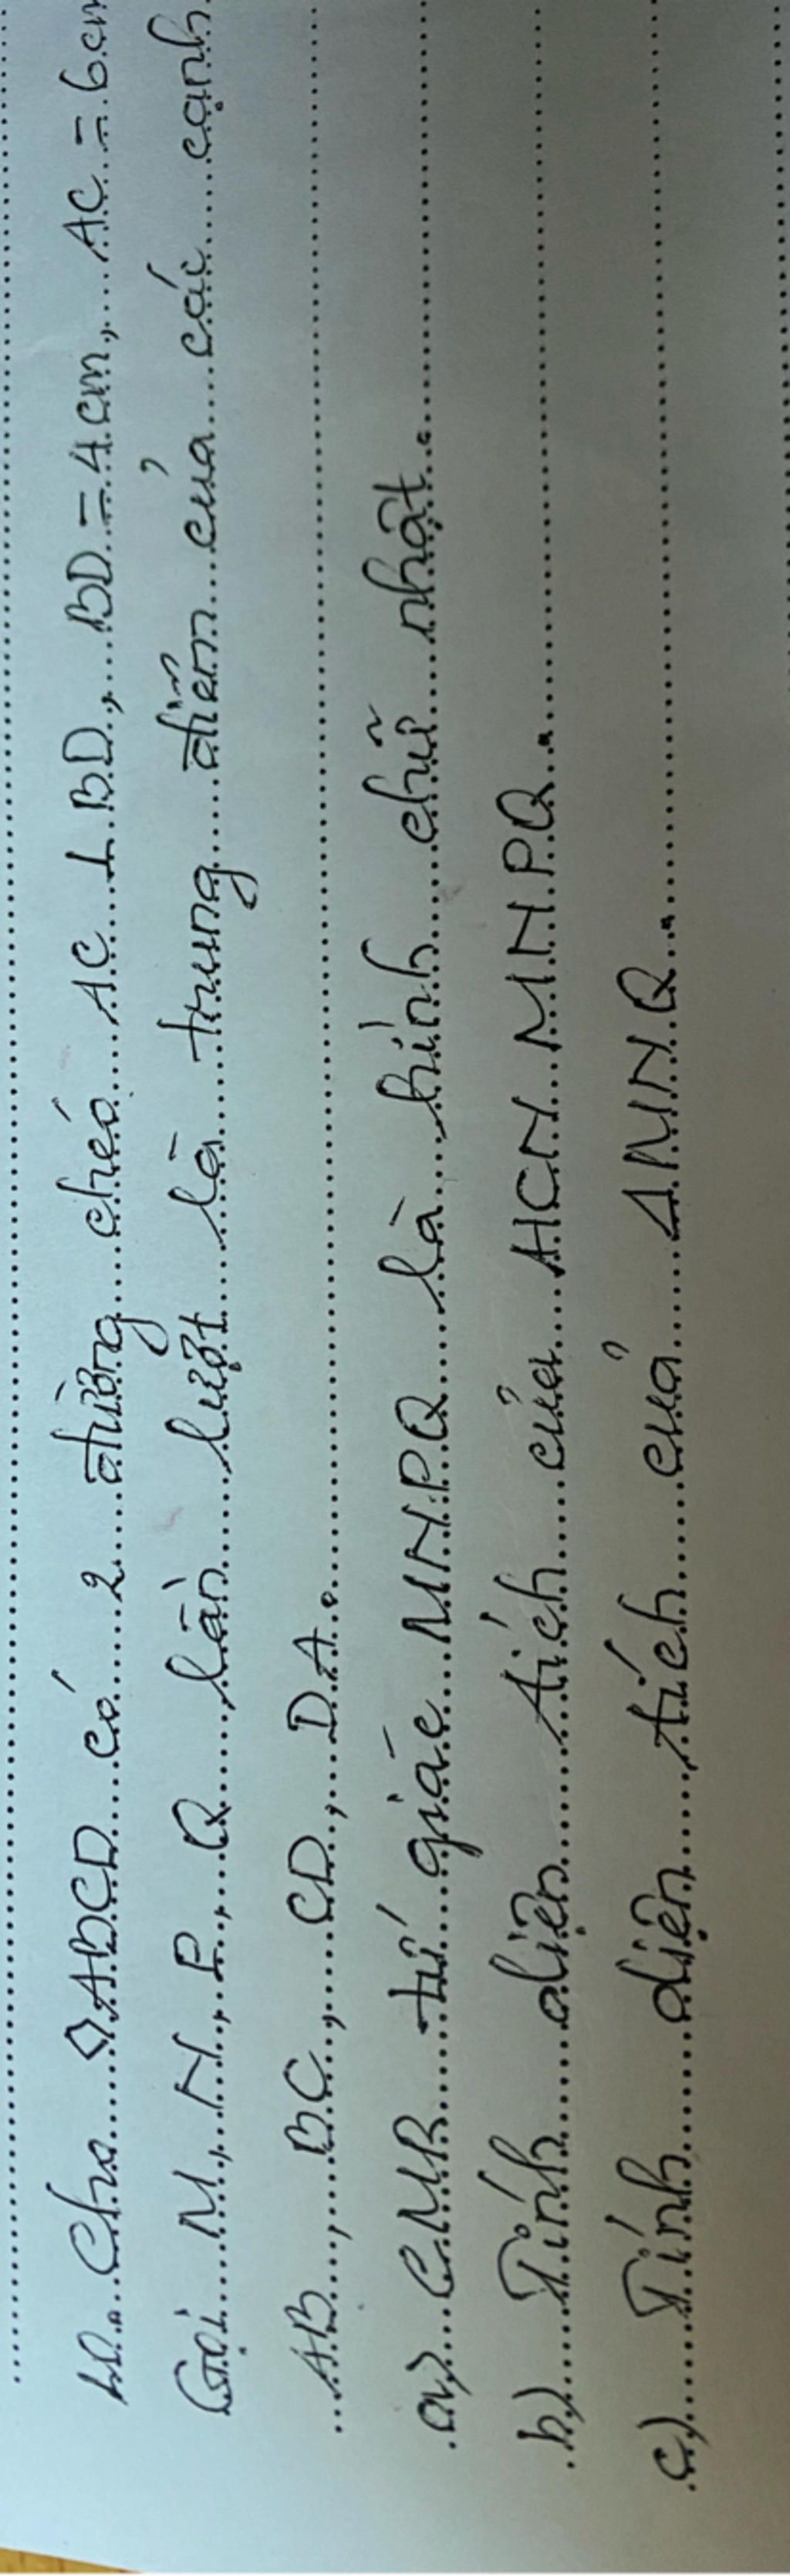 10. Cho ◊ABCD có 2 đường chéo AC ⊥ BD, BD = 4 cm, AC = 6 cm
Gọi M, N, P, Q lần lượt là trung điểm của các cạnh
AB, BC, CD, DA.
a) CMR tứ giác MNPQ là hình chữ nhật.
b) Tính diện tích của HCN MNPQ.
c) Tính diện tích của ΔMNQ.